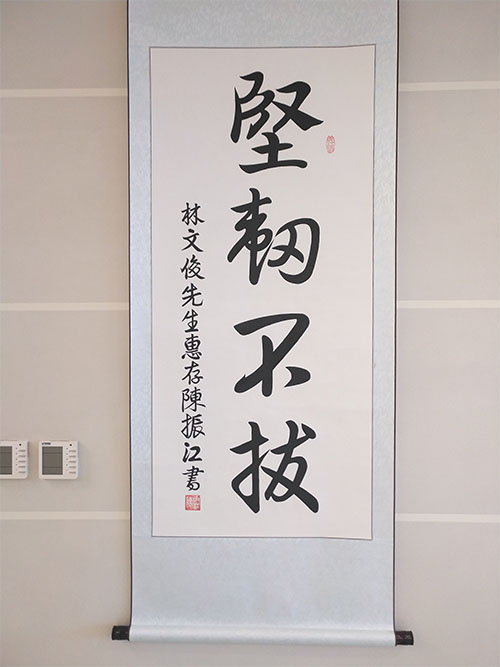 堅韌不拔
林文俊先生惠存陳振江書